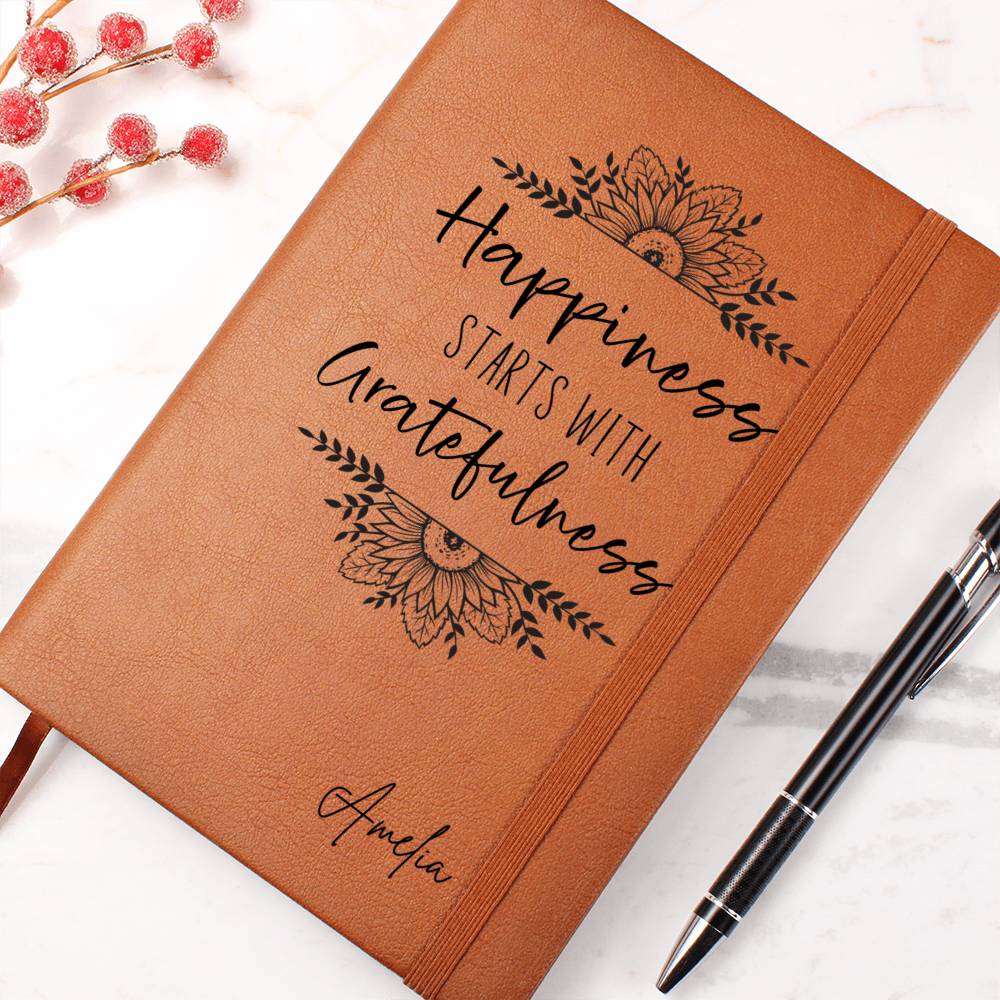 Happiness
STARTS WITH
Gratefulness
Amelia